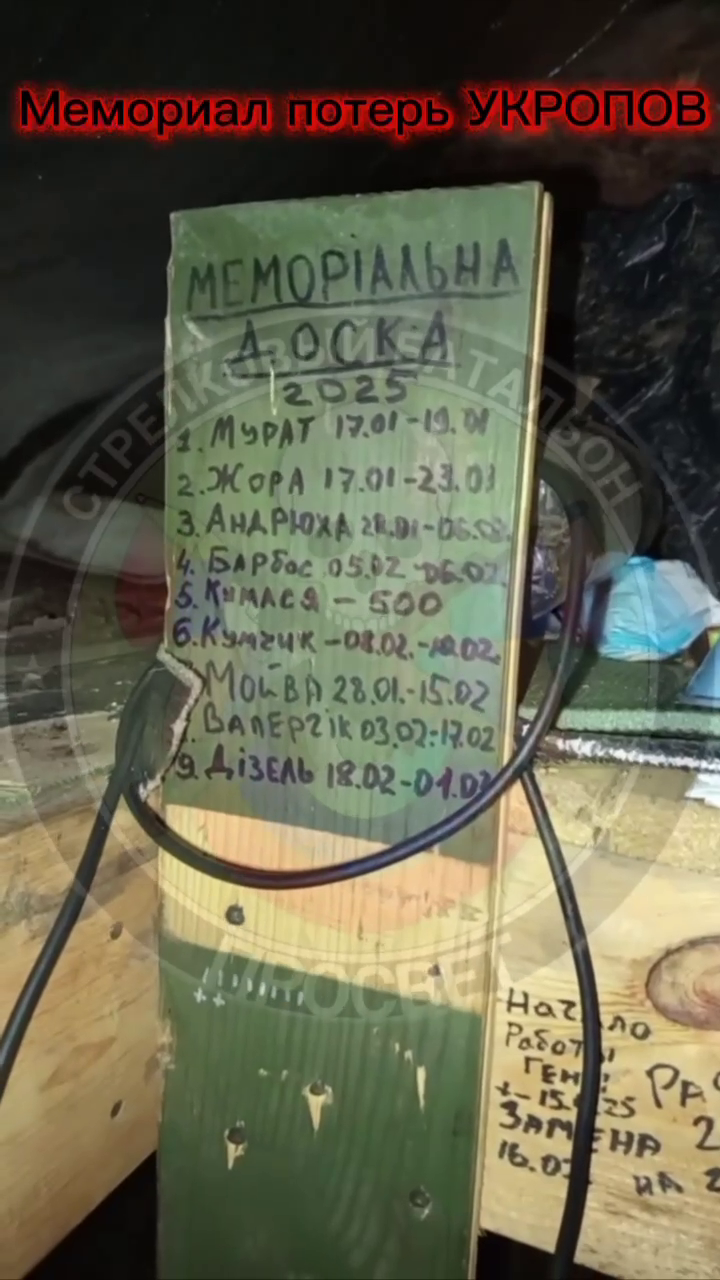 Мемориал потерь УКРОПОВ
МЕМОРІАЛЬНА
ДОСКА
2025
1. МУРАТ 17.01-19.01
2. ЖОРА 17.01-23.01
3. АНДРЮХА
4. БАРБОС 05.02-06.02.
5. КУМАСЯ - 500
6. КУМЧИК -08.02.-
МОЙВА 28.01.-15.02
ВАЛЕРЧІК 03.02-17.02
9. ДІЗЕЛЬ 18.02-01.03
СТРЕЛКОВЫЙ БАТАЛЬОН
ПРОСВЕТ
Начало
Работы
ГЕН
ЗАМЕНА 2
НА